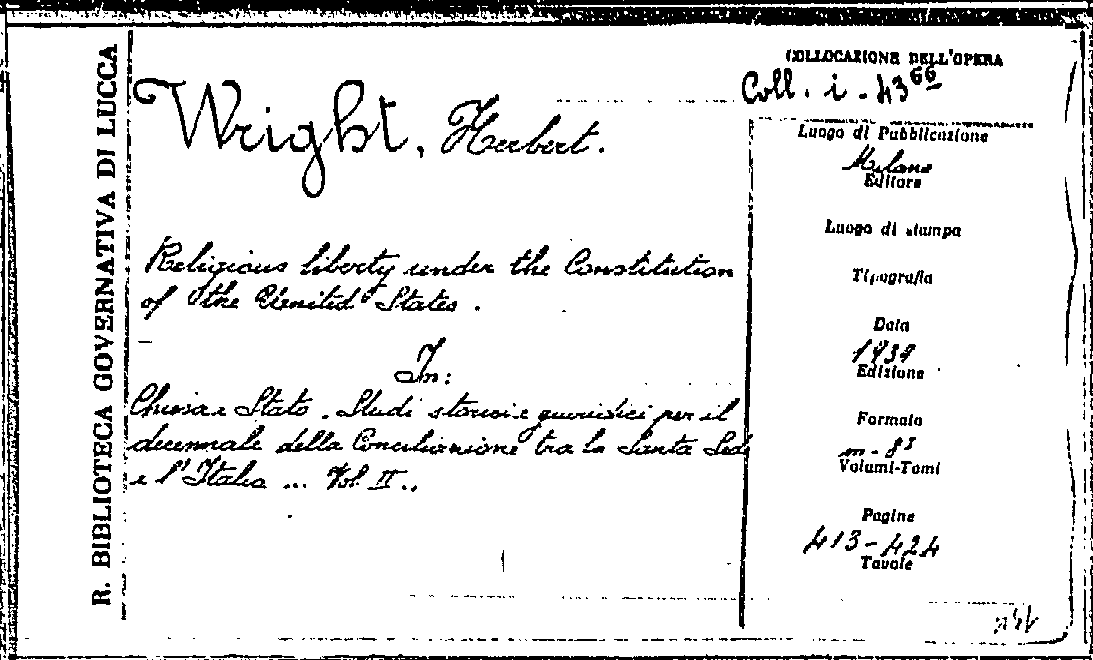 R. BIBLIOTECA GOVERNATIVA DI LUCCA
Wright, Herbert.
Religious liberty under the Constitution
of the United States.
In:
Chiesa e Stato. Studi storici e giuridici per il
decennale della Conciliazione tra la Santa Sede
e l'Italia ... Vol. II..
COLLOCAZIONE DELL'OPERA
Coll. i - 43 66
Luogo di Pubblicazione
Milano
Editore
Luogo di stampa
Tipografia
Data
1939
Edizione
Formato
in-8°
Volumi-Tomi
Pagine
413-424
Tavole